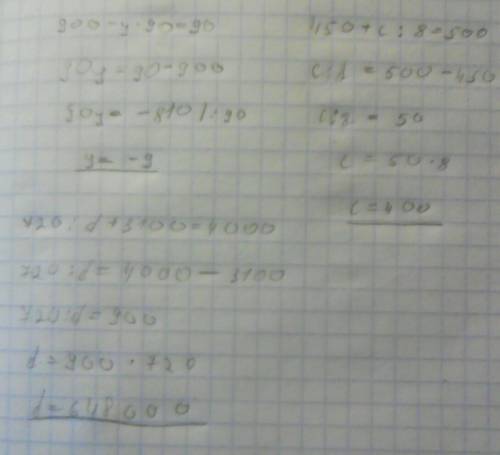 900-y·90=90
90y=90-900
90y= -810 /:90
y= -9
450+c:8=500
c:8 = 500-450
c:8 = 50
c = 50·8
c=400
720:f+3100=4000
720:f=4000-3100
720:f=900
f=900·720
f=648000